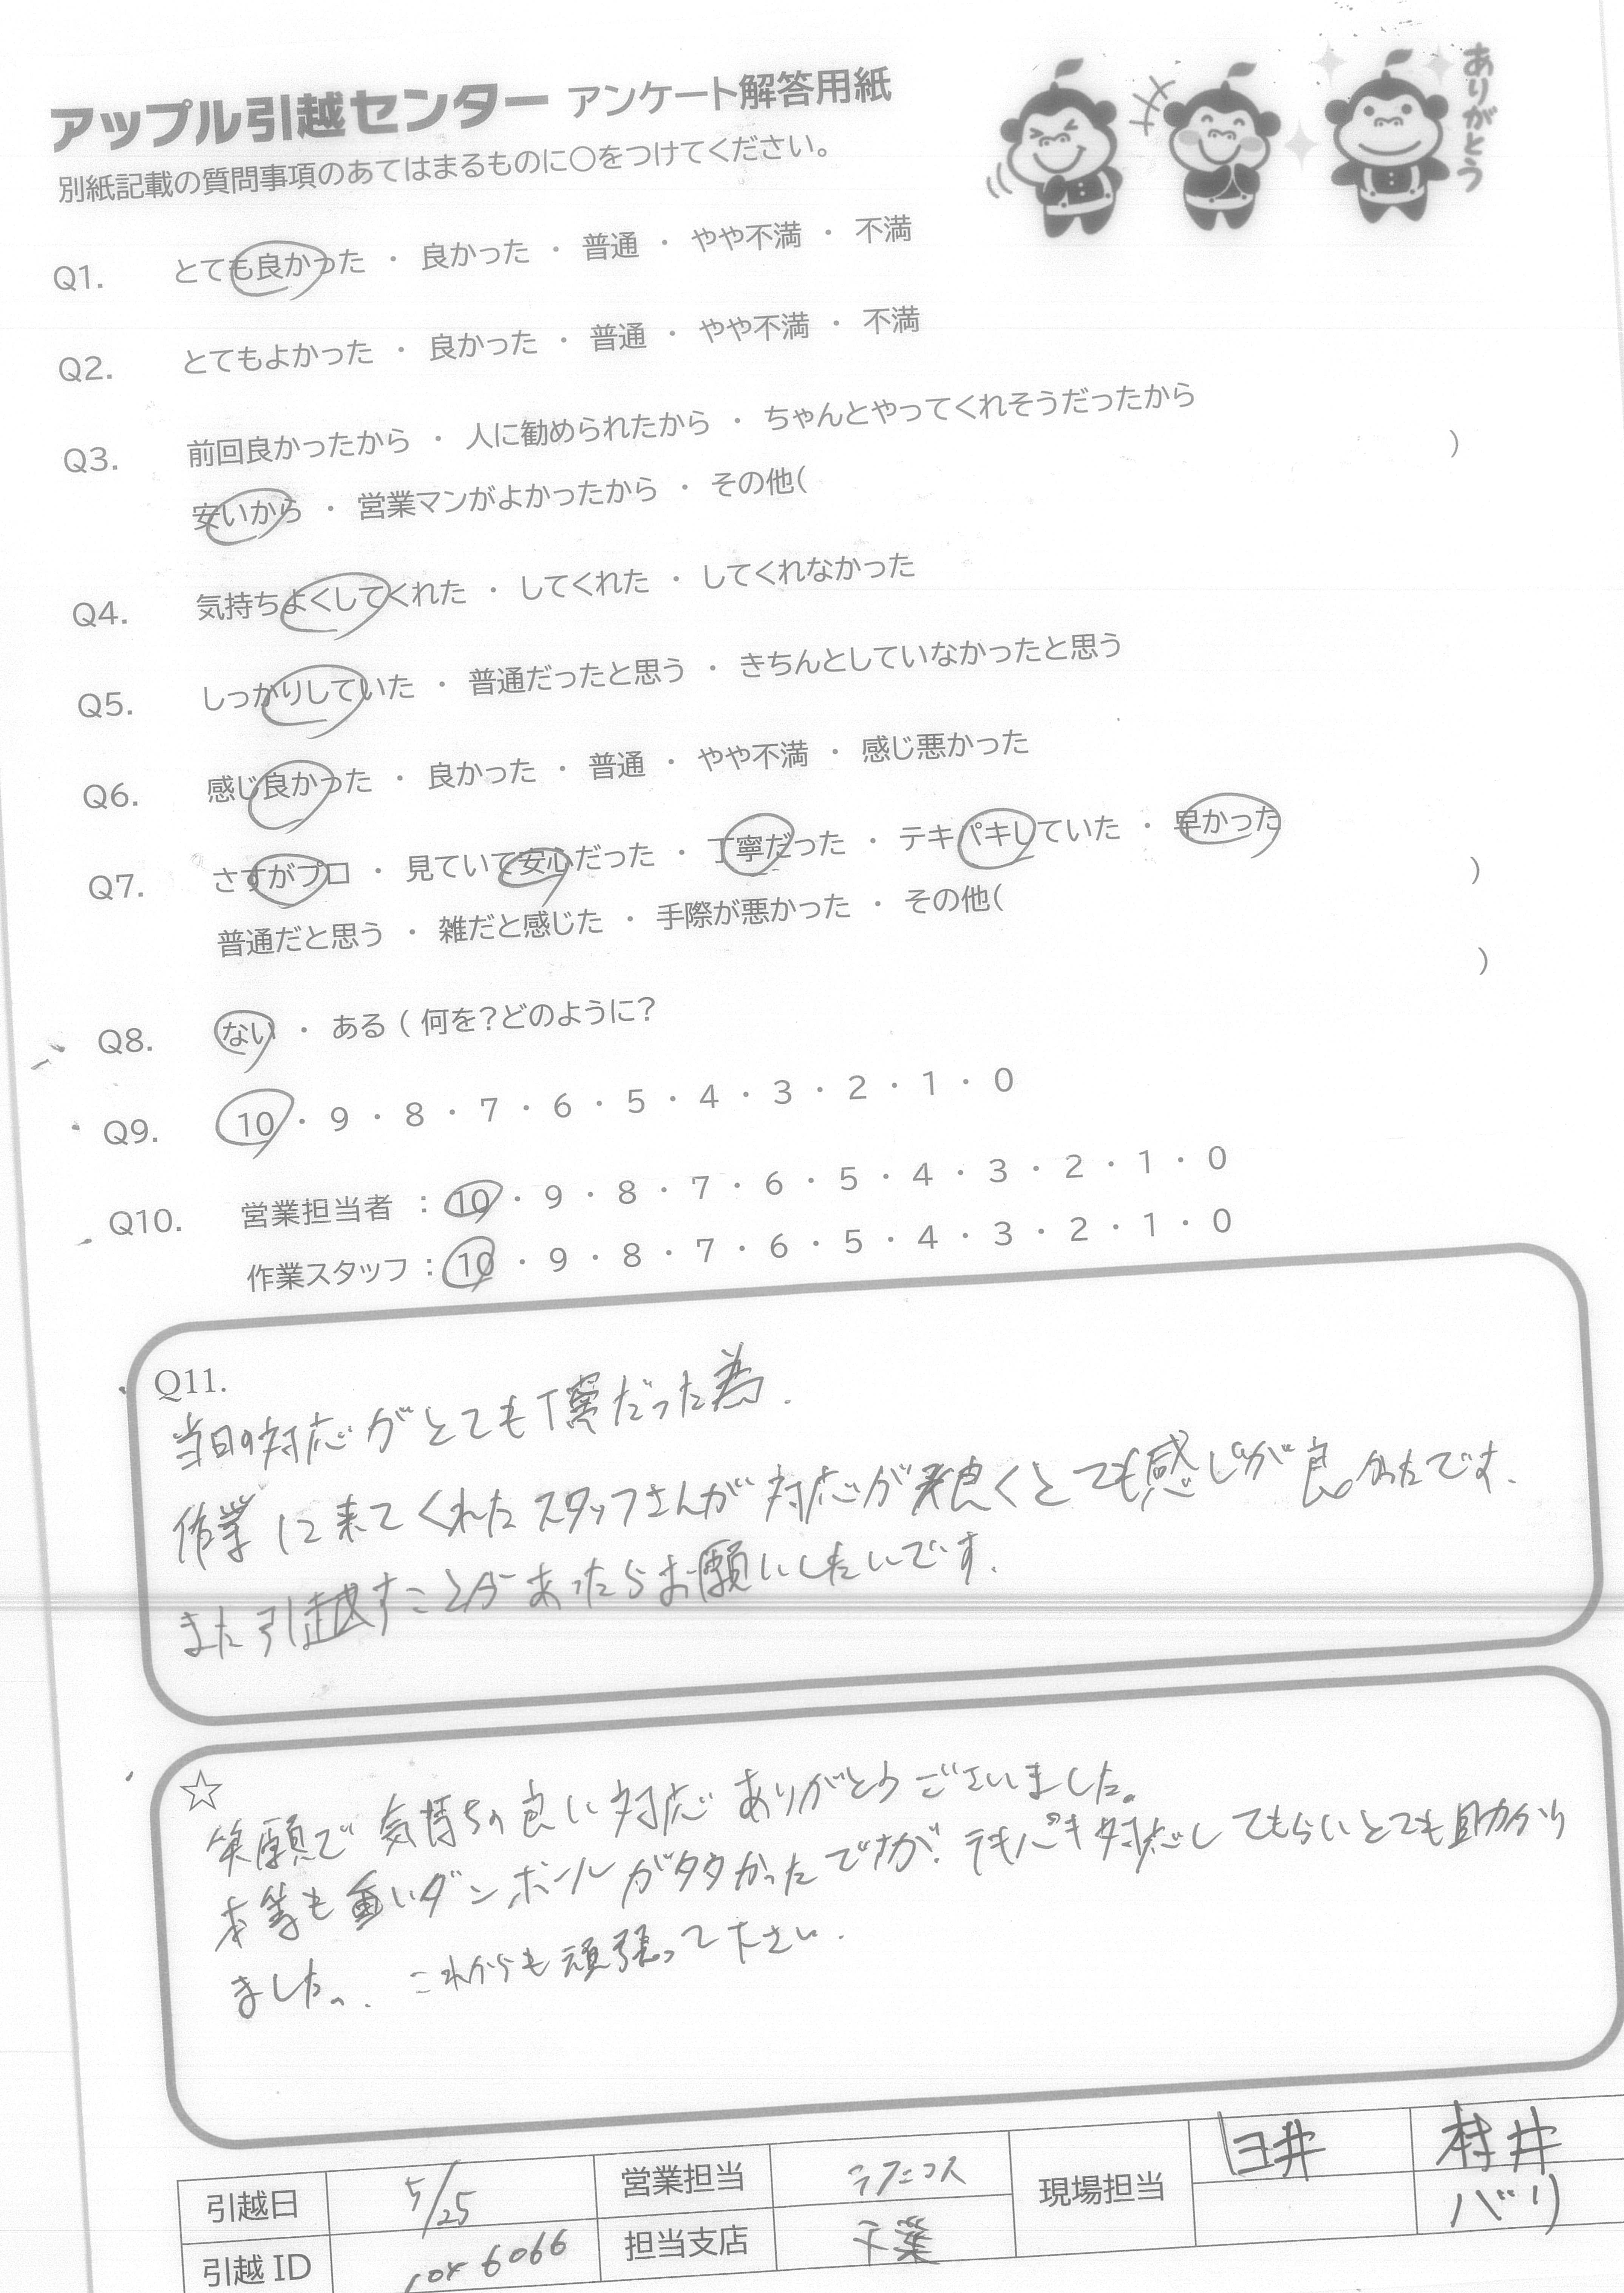 アップル引越センター アンケート解答用紙
ありがとう
別紙記載の質問事項のあてはまるものに○をつけてください。
Q1. とても良かった ・ 良かった ・ 普通 ・ やや不満 ・ 不満
Q2. とてもよかった ・ 良かった ・ 普通 ・ やや不満 ・ 不満
Q3. 前回良かったから ・ 人に勧められたから ・ ちゃんとやってくれそうだったから
安いから ・ 営業マンがよかったから ・ その他( )
Q4. 気持ちよくしてくれた ・ してくれた ・ してくれなかった
Q5. しっかりしていた ・ 普通だったと思う ・ きちんとしていなかったと思う
Q6. 感じ良かった ・ 良かった ・ 普通 ・ やや不満 ・ 感じ悪かった
Q7. さすがプロ ・ 見ていて安心だった ・ 丁寧だった ・ テキパキしていた ・ 早かった
普通だと思う ・ 雑だと感じた ・ 手際が悪かった ・ その他( )
Q8. ない ・ ある ( 何を?どのように? )
Q9. 10 ・ 9 ・ 8 ・ 7 ・ 6 ・ 5 ・ 4 ・ 3 ・ 2 ・ 1 ・ 0
Q10. 営業担当者 : 10 ・ 9 ・ 8 ・ 7 ・ 6 ・ 5 ・ 4 ・ 3 ・ 2 ・ 1 ・ 0
作業スタッフ : 10 ・ 9 ・ 8 ・ 7 ・ 6 ・ 5 ・ 4 ・ 3 ・ 2 ・ 1 ・ 0
Q11.
当日の対応がとても丁寧だった為.
作業に来てくれたスタッフさんが対応が良くとても感じが良かったです.
また引越すことがあったらお願いしたいです.
☆
笑顔で気持ちの良い対応ありがとうございました。
本等も重いダンボールが多かったですが、テキパキ対応してもらいとても助かり
ました。. これからも頑張って下さい.
引越日 5/25 営業担当 現場担当 臼井 村井
バリ
引越 ID 6066 担当支店 千葉